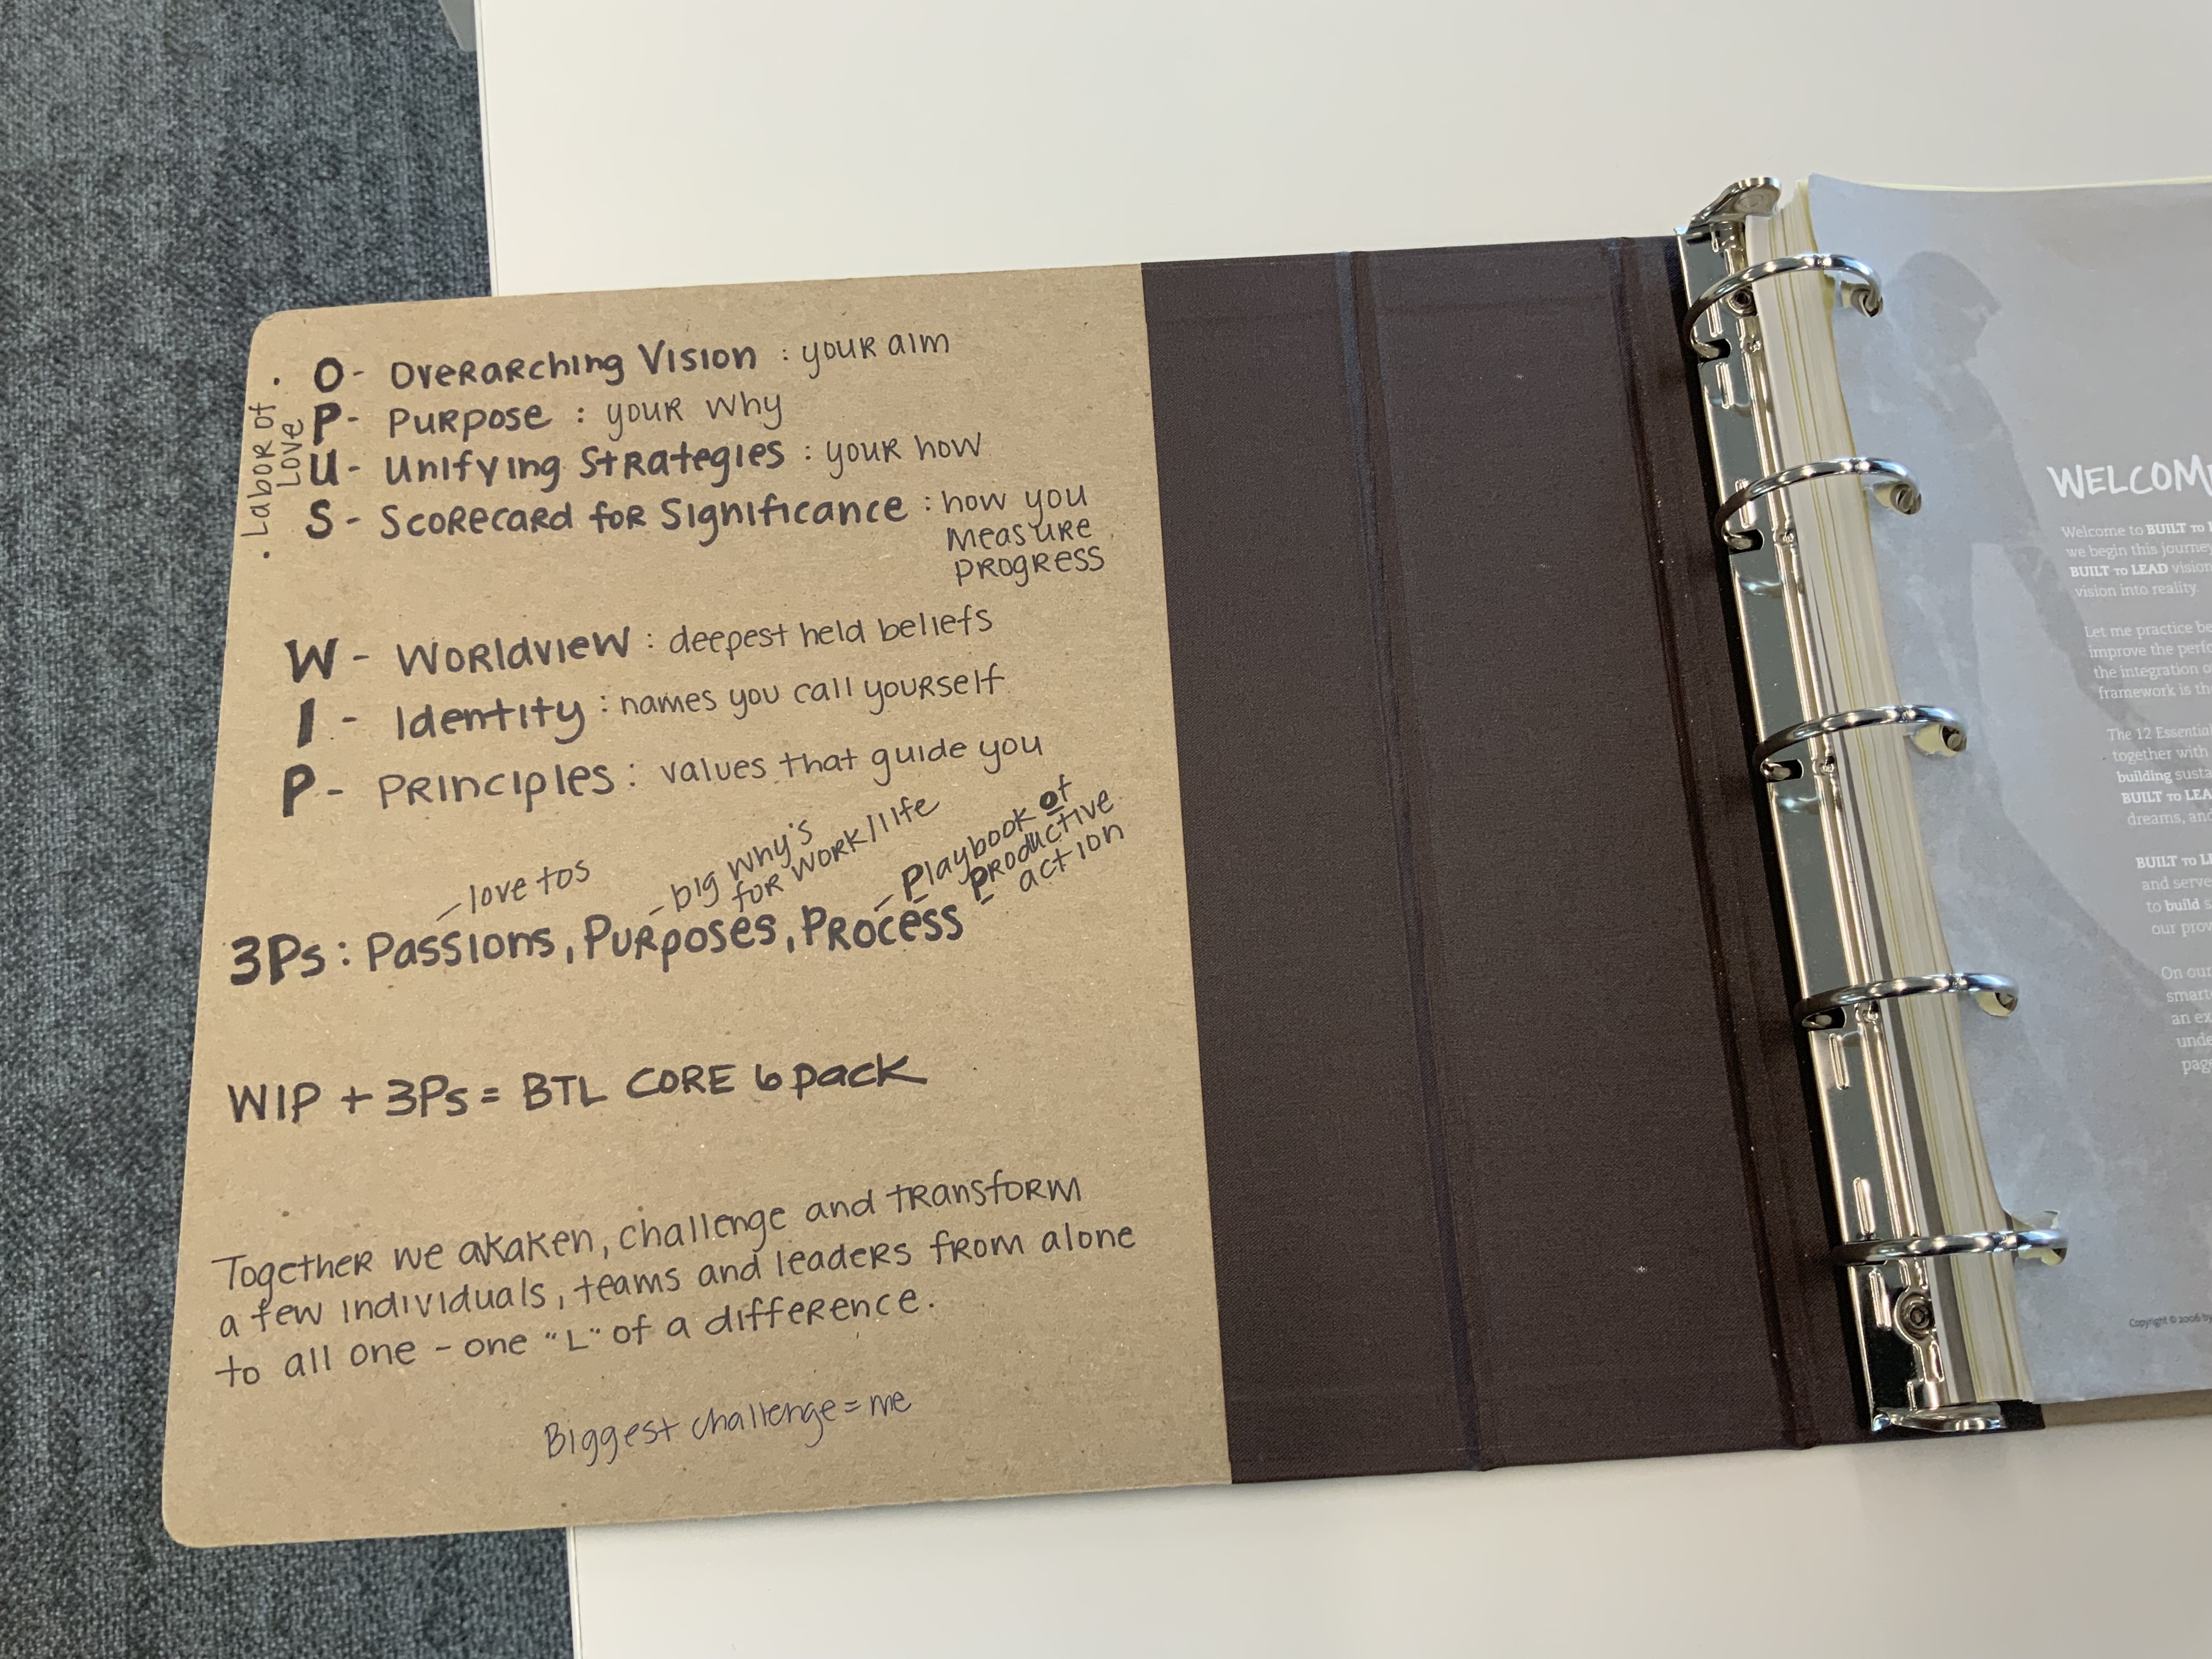 . Labor of
Love .
O - Overarching Vision : your aim
P - Purpose : your why
U - Unifying Strategies : your how
S - Scorecard for Significance : how you
measure
progress
W - Worldview : deepest held beliefs
I - Identity : names you call yourself
P - Principles : values that guide you
- love tos
- big why's
for work/life
- Playbook of
Productive
action
3Ps : Passions, Purposes, Process
WIP + 3Ps = BTL CORE 6 pack
Together we akaken, challenge and transform
a few individuals, teams and leaders from alone
to all one - one "L" of a difference.
Biggest challenge = me
WELCOM
Welcome to BUILT TO
we begin this journey
BUILT TO LEAD vision
vision into reality
Let me practice
improve the
the integration
framework is
The 12 Essential
together with
building
BUILT TO
dreams, and
BUILT TO
and serve
to build
our
On our
an
Copyright © 2006 by